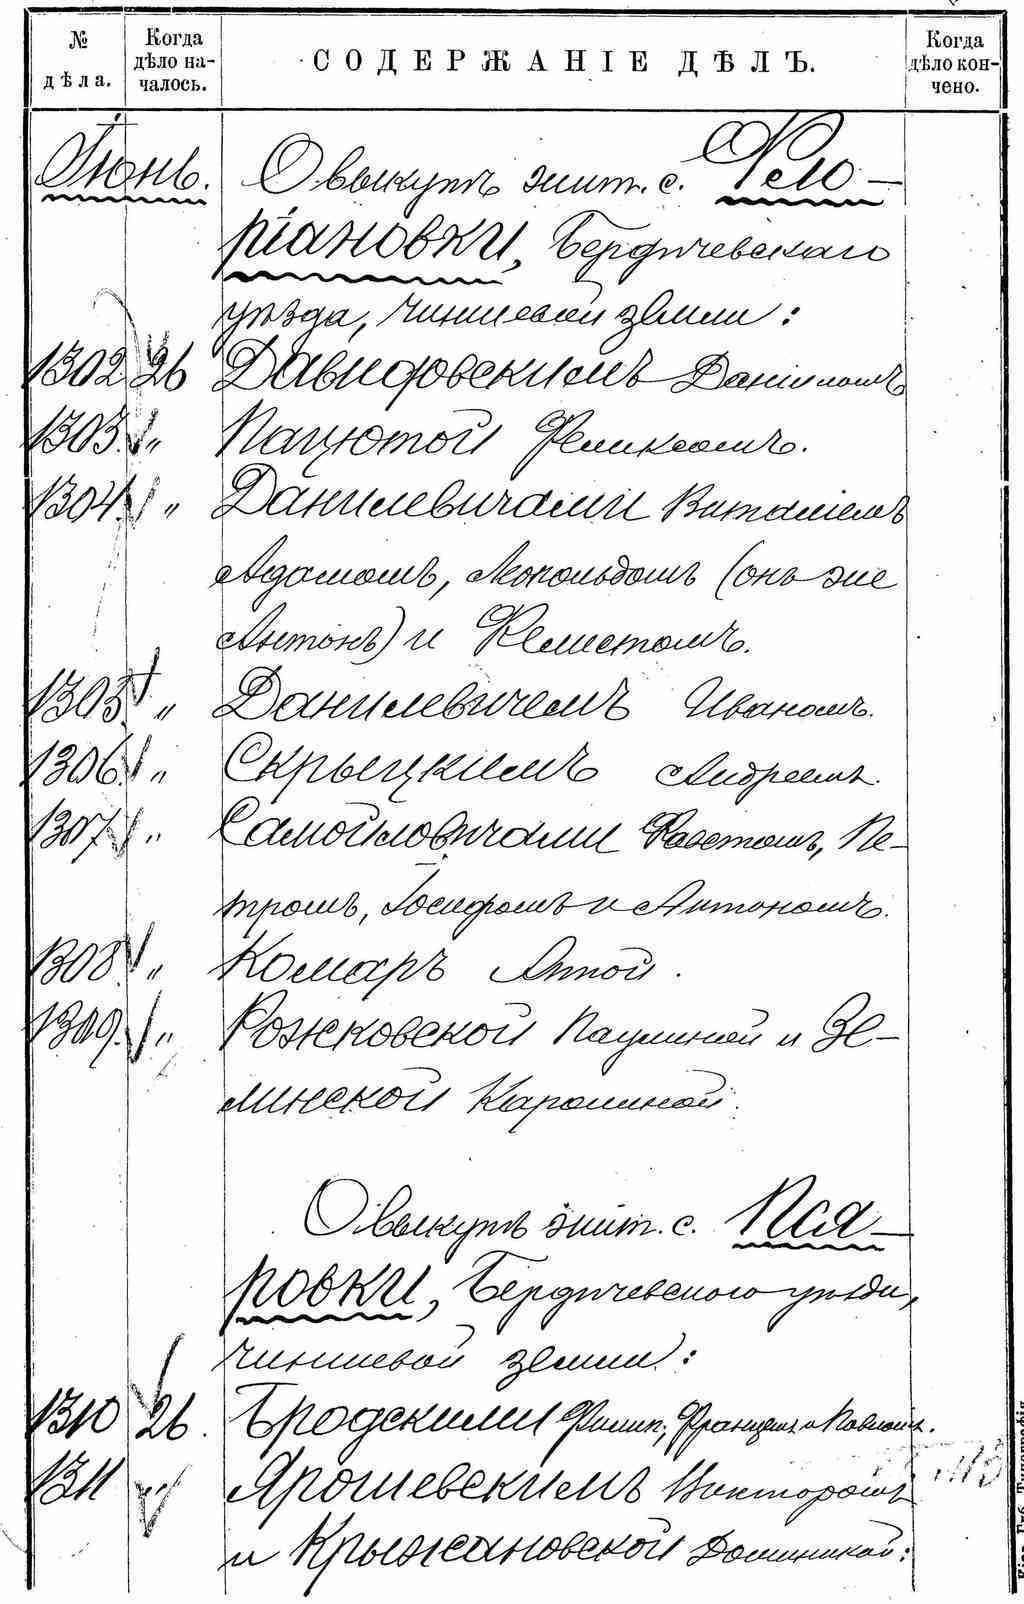 № дѣла.
Когда дѣло началось.
СОДЕРЖАНІЕ ДѢЛЪ.
Когда дѣло кончено.
Іюнь. О выкупѣ жит. с. Фло-
ріановки, Бердичевскаго
уѣзда, чиншевой земли:
1302 26 Давидовскимъ Даніиломъ
1303. " Пацютой Феликсомъ.
1304. " Данилевичами Виталіемъ
Адамомъ, Леопольдомъ (онъ же
Антонъ) и Целестомъ.
1305. " Данилевичемъ Иваномъ.
1306. " Скрыцкимъ Андреемъ.
1307 " Самойловичами Фавстомъ, Пе-
тромъ, Іосифомъ и Антономъ.
1308. " Комаръ Анной.
1309. " Рожковской Паулиной и Зе-
линской Каролиной.
О выкупѣ жит. с. Пся-
ровки, Бердичевского уѣзда,
чиншевой земли:
1310 26. Бродскими Филип, Францемъ и Павломъ.
1311 " Ярошевскимъ Викторомъ
и Крыжановской Доминикой: